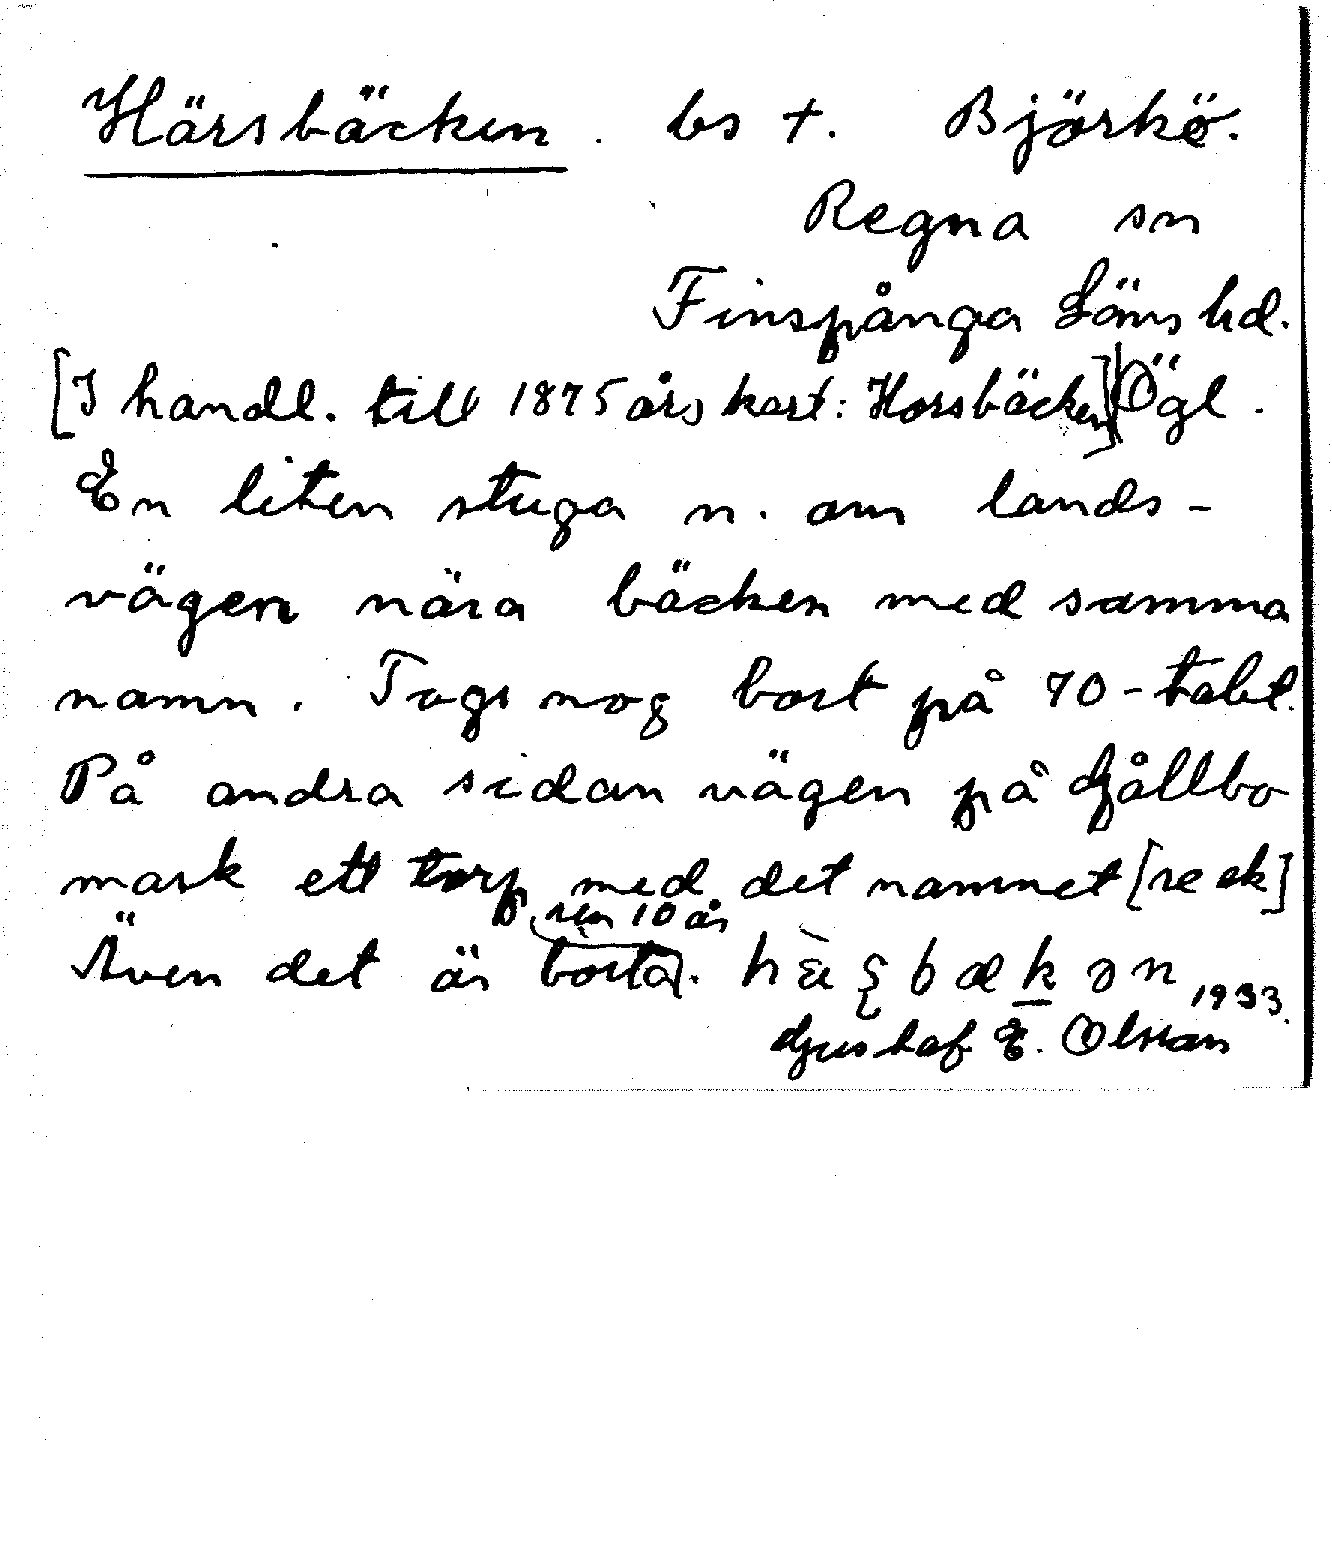 Härsbäcken. bs †. Björkö.
Regna sn
Finspånga Läns hd.
[I handl. till 1875 års kart: Horsbäcken] Ögl.
En liten stuga n. om lands-
vägen nära bäcken med samma
namn. Togs nog bort på 70-talet.
På andra sidan vägen på Gållbo
mark ett torp med det namnet [se ek]
sen 10 år
Även det är borta.
1933
Gustaf E. Olsson